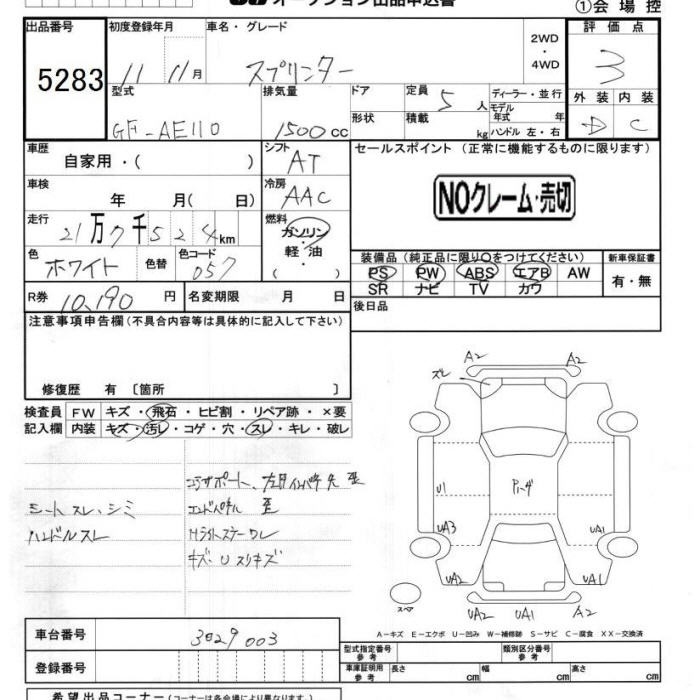 オークション出品申込書
①会場控
出品番号 初度登録年月 車名・グレード 2WD・4WD 評価点
5283 11 11月 スプリンター 3
型式 排気量 ドア 定員 5人 ディーラー・並行 外装 内装
GF-AE110 1500cc 形状 積載 kg モデル年式 年 ハンドル 左・右 D C
車歴 シフト セールスポイント (正常に機能するものに限ります)
自家用・( ) AT
車検 冷房 NOクレーム・売切
年 月(日) AAC
走行 燃料
21万7千524km ガソリン・軽・油 ( )
色 色替 色コード 装備品(純正品に限り○をつけてください) 新車保証書
ホワイト 057 PS PW ABS エアB AW 有・無
SR ナビ TV カワ
R券 10,190円 名変期限 月 日 後日品
注意事項申告欄(不具合内容等は具体的に記入して下さい)
修復歴 有 [箇所 ]
検査員 FW キズ・飛石・ヒビ割・リペア跡・×要
記入欄 内装 キズ・汚レ・コゲ・穴・スレ・キレ・破レ
シートスレ、シミ
ハンドルスレ
コアサポート、左月インパネ先 歪
エンドパネル 歪
Hライトステー ワレ
キズ U スリキズ
A2 A2
ズレ
U1 Pﾊｰﾀﾞ
UA3 UA1
UA2 UA1
スペア UA2 UA1 A2
A-キズ E-エクボ U-凹み W-補修跡 S-サビ C-腐食 XX-交換済
車台番号 3029003
登録番号
型式指定番号 参考 類別区分番号 参考
車庫証明用 参考 長さ cm 幅 cm 高さ cm
希望出品コーナー(コーナーは各会場により異なります)